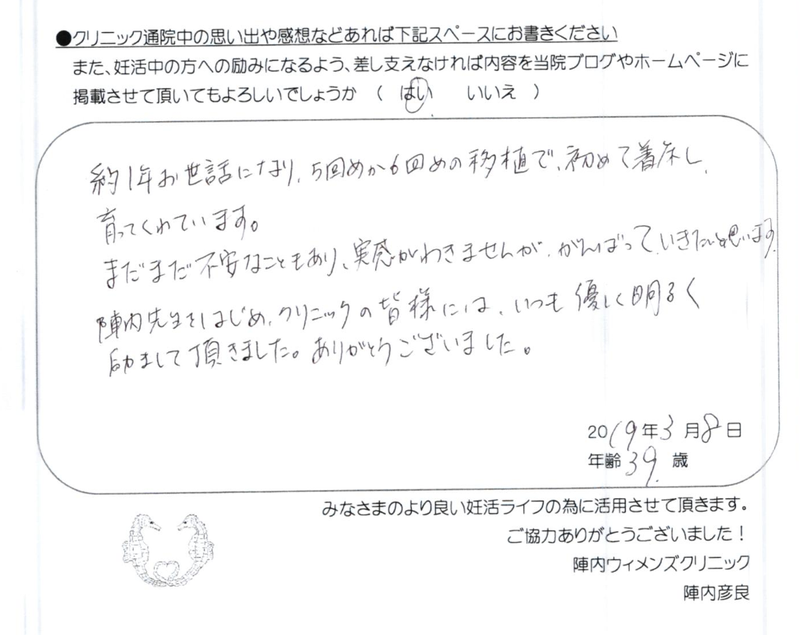 ●クリニック通院中の思い出や感想などあれば下記スペースにお書きください
また、妊活中の方への励みになるよう、差し支えなければ内容を当院ブログやホームページに
掲載させて頂いてもよろしいでしょうか （ はい いいえ ）
約1年お世話になり、5回めか6回めの移植で、初めて着床し、
育ってくれています。
まだまだ不安なこともあり、実感がわきませんが、がんばっていきたいと思います。
陣内先生をはじめ、クリニックの皆様には、いつも優しく明るく
励まして頂きました。ありがとうございました。
2019年3月8日
年齢39歳
みなさまのより良い妊活ライフの為に活用させて頂きます。
ご協力ありがとうございました！
陣内ウィメンズクリニック
陣内彦良